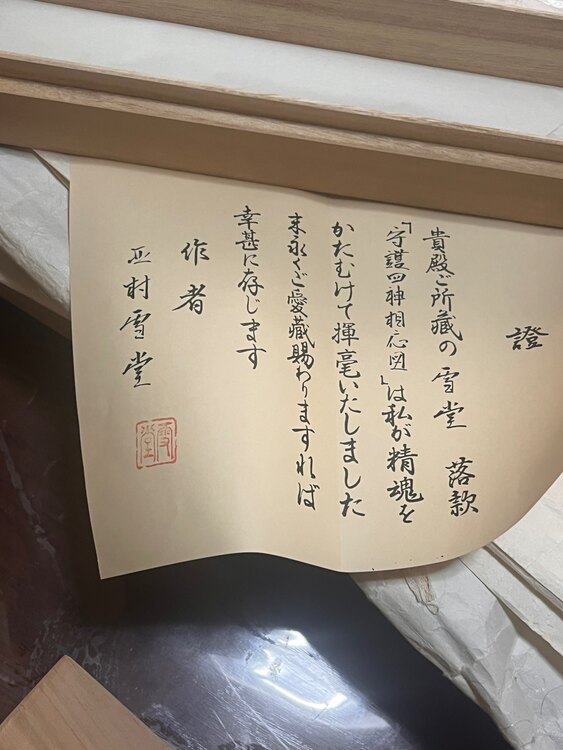 證
貴殿ご所藏の雪堂 落款
「守護四神相応図」は私が精魂を
かたむけて揮毫いたしました
末永くご愛藏賜わりますれば
幸甚に存じます
作者
正村雪堂
雪堂